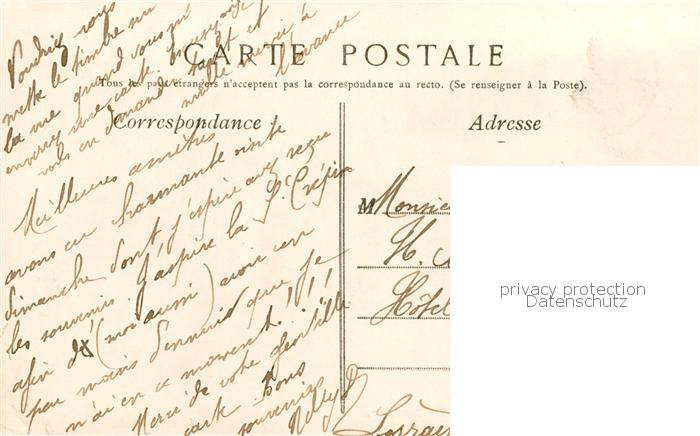 CARTE POSTALE
Tous les pays étrangers n'acceptent pas la correspondance au recto. (Se renseigner à la Poste).
Correspondance
Adresse
Voudriez vous
mettre le timbre du
la vue quand vous m'
enverrez une carte
vous en demander
mille merci à
l'avance
Meilleures amitiés
avons eu charmante visite
dimanche dont j'espère avez reçu
les souvenirs. J'aspire la St Crépin
afin de (moi aussi) avoir un
peu moins d'ennuis que je
n'ai en ce moment!!!
Merci de votre gentille
carte. Bons
souvenirs
Nelly
M Monsie
H.
Hôtel
privacy protection
Datenschutz